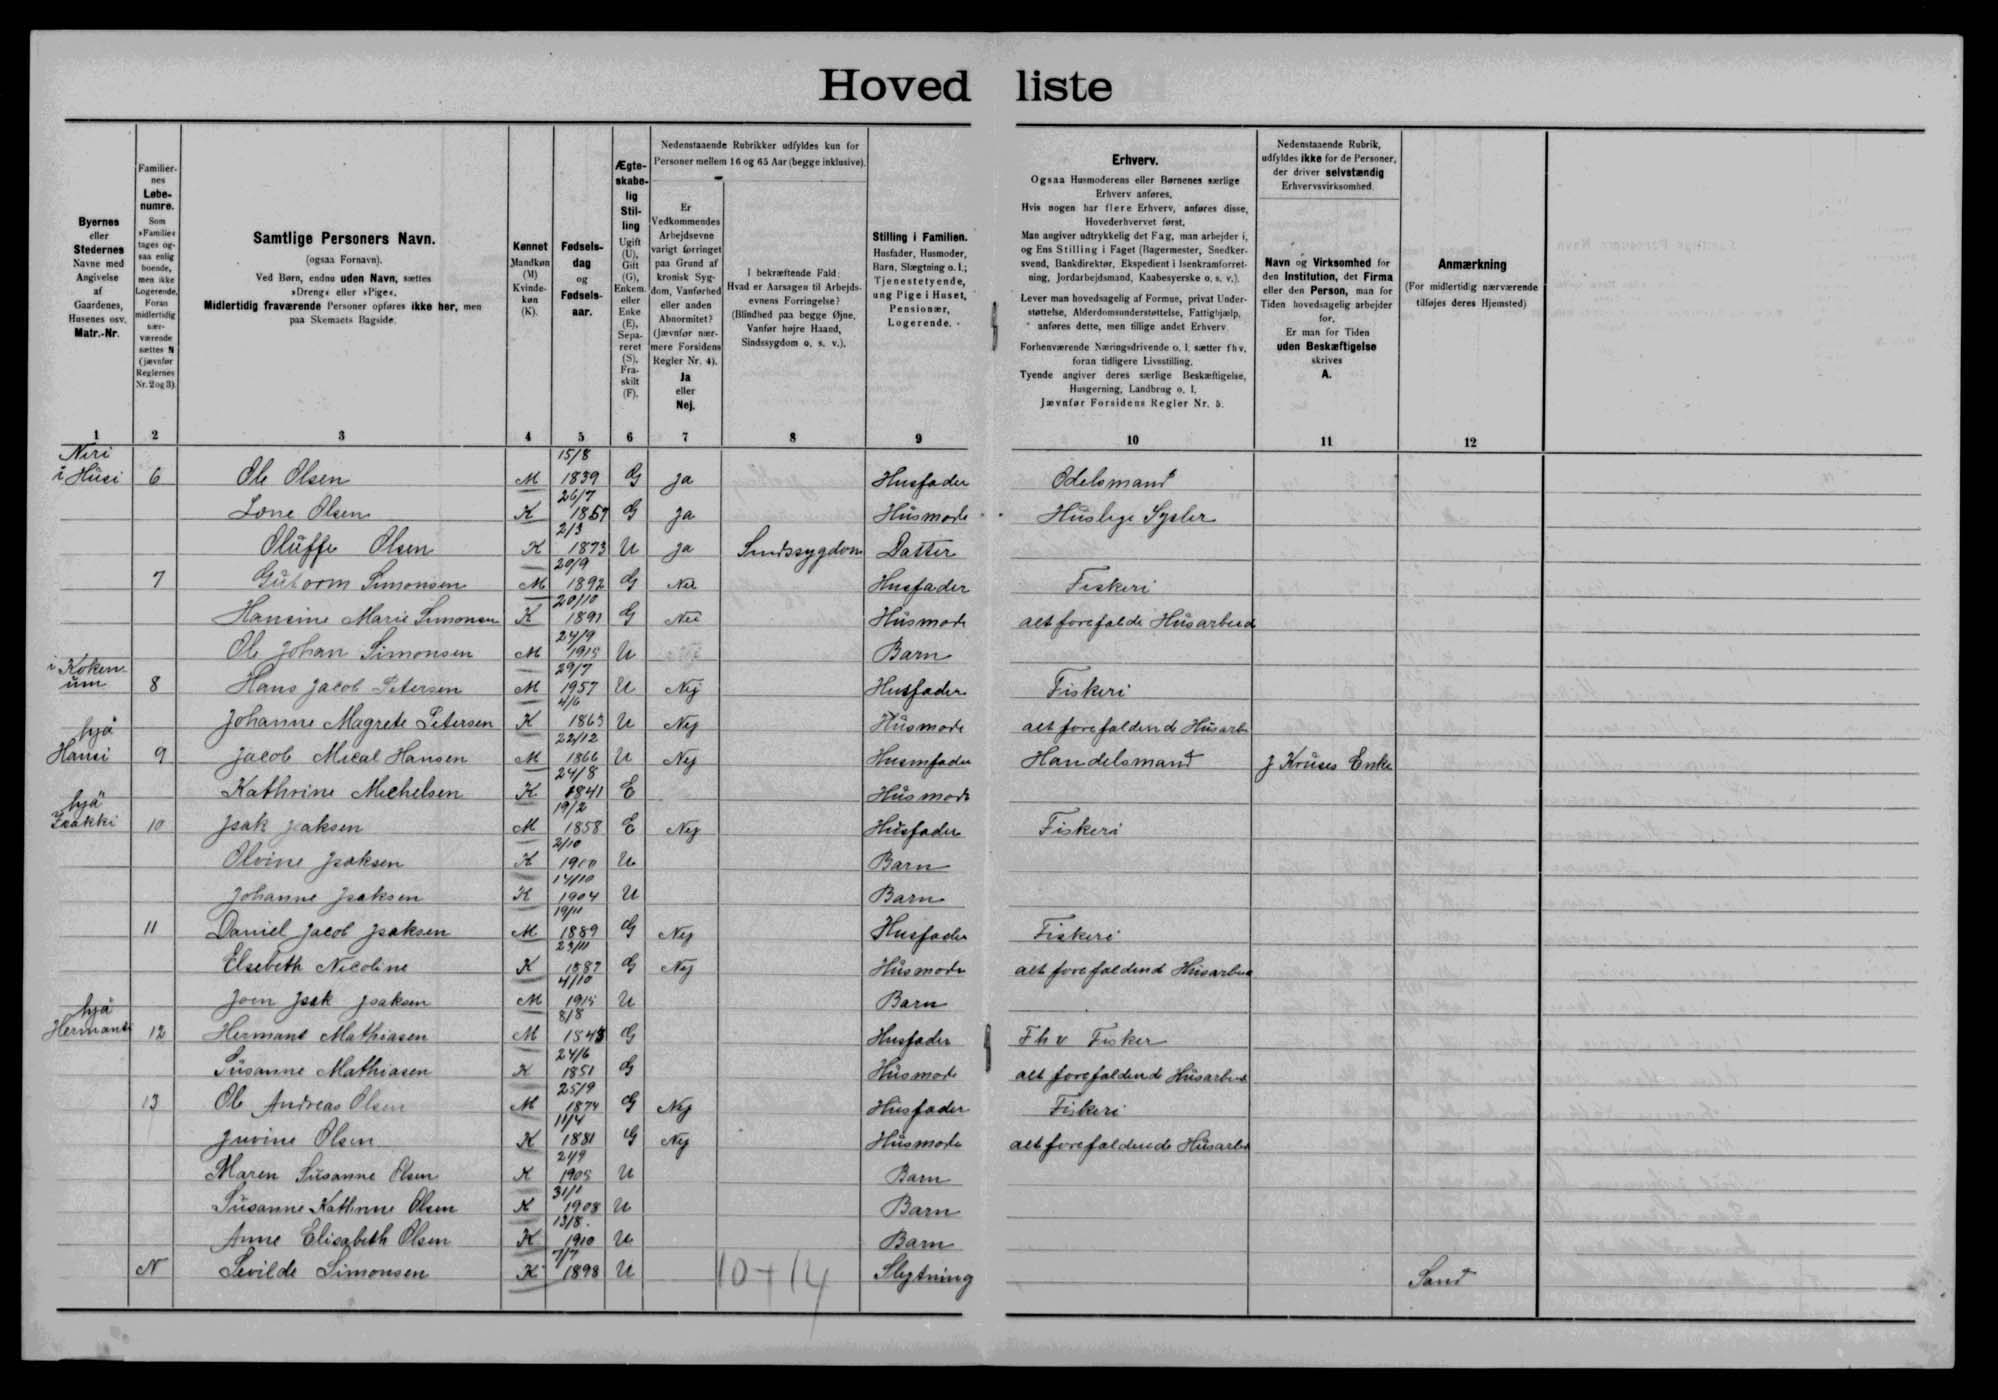 Hoved liste
Byernes eller Stedernes Navne med Angivelse af Gaardenes, Husenes osv. Matr.-Nr.
Familiernes Løbenumre. Som »Familie« tages ogsaa enlig boende, men ikke Logerende. Foran midlertidig nærværende sættes N (jævnfør Reglernes Nr. 2 og 3).
Samtlige Personers Navn. (ogsaa Fornavn). Ved Børn, endnu uden Navn, sættes »Dreng« eller »Pige«. Midlertidig fraværende Personer opføres ikke her, men paa Skemaets Bagside.
Kønnet Mandkøn (M) Kvindekøn (K).
Fødselsdag og Fødselsaar.
Ægteskabelig Stilling Ugift (U), Gift (G), Enkem. eller Enke (E), Separeret (S), Fraskilt (F).
Nedenstaaende Rubrikker udfyldes kun for Personer mellem 16 og 65 Aar (begge inklusive).
Er Vedkommendes Arbejdsevne varigt forringet paa Grund af kronisk Sygdom, Vanførhed eller anden Abnormitet? (Jævnfør nærmere Forsidens Regler Nr. 4). Ja eller Nej.
I bekræftende Fald: Hvad er Aarsagen til Arbejdsevnens Forringelse? (Blindhed paa begge Øjne, Vanfør højre Haand, Sindssygdom o. s. v.).
Stilling i Familien. Husfader, Husmoder, Barn, Slægtning o. l.; Tjenestetyende, ung Pige i Huset, Pensionær, Logerende.
Erhverv. Ogsaa Husmoderens eller Børnenes særlige Erhverv anføres. Hvis nogen har flere Erhverv, anføres disse, Hovederhvervet først. Man angiver udtrykkelig det Fag, man arbejder i, og Ens Stilling i Faget (Bagermester, Snedkersvend, Bankdirektør, Ekspedient i Isenkramforretning, Jordarbejdsmand, Kaabesyerske o. s. v.). Lever man hovedsagelig af Formue, privat Understøttelse, Alderdomsunderstøttelse, Fattighjælp, anføres dette, men tillige andet Erhverv. Forhenværende Næringsdrivende o. l. sætter fhv. foran tidligere Livsstilling. Tyende angiver deres særlige Beskæftigelse, Husgerning, Landbrug o. l. Jævnfør Forsidens Regler Nr. 5.
Nedenstaaende Rubrik, udfyldes ikke for de Personer, der driver selvstændig Erhvervsvirksomhed.
Navn og Virksomhed for den Institution, det Firma eller den Person, man for Tiden hovedsagelig arbejder for. Er man for Tiden uden Beskæftigelse skrives A.
Anmærkning (For midlertidig nærværende tilføjes deres Hjemsted)
1 2 3 4 5 6 7 8 9 10 11 12
Niri i Húsi 6 Ole Olsen M 15/8 1839 G Ja Husfader Odelsmand
Lone Olsen K 26/7 1857 G Ja Husmode Huslige Sysler
Oluffe Olsen K 2/3 1873 U Ja Sindssygdom Datter
7 Gutorm Simonsen M 20/9 1892 G Nei Husfader Fiskeri
Hansine Marie Simonsen K 20/10 1891 G Nei Husmode alt forefalde Husarbeid
Ole Johan Simonsen M 24/9 1915 U Barn
i Koken um 8 Hans Jacob Petersen M 29/7 1957 U Nej Husfader Fiskeri
Johanne Magrete Petersen K 4/6 1863 U Nej Husmode alt forefaldend Husarb
hjá Hansi 9 Jacob Mical Hansen M 22/12 1866 U Nej Husmfader Handelsmand J Kruses Enke
Kathrine Michelsen K 24/8 1841 E Husmode
hjá Isakki 10 Isak Isaksen M 19/2 1858 E Nej Husfader Fiskeri
Olvine Isaksen K 2/10 1900 U Barn
Johanne Isaksen K 14/10 1904 U Barn
11 Daniel Jacob Isaksen M 19/11 1889 G Nej Husfader Fiskeri
Elsebeth Nicoline K 23/11 1887 G Nej Husmode alt forefaldend Husarbei
Joen Isak Isaksen M 4/10 1915 U Barn
hjá Hermans 12 Hermans Mathiasen M 8/8 1848 G Husfader Fhv Fisker
Susanne Mathiasen K 24/6 1851 G Husmode alt forefaldend Husarbeid
13 Ole Andreas Olsen M 25/9 1874 G Nej Husfader Fiskeri
Juvine Olsen K 11/4 1881 G Nej Husmode alt forefaldende Husarbei
Maren Susanne Olsen K 24/9 1905 U Barn
Susanne Kathrine Olsen K 31/1 1908 U Barn
Anne Elisabeth Olsen K 13/8 1910 U Barn
N Sevilde Simonsen K 7/7 1898 U 10+14 Slegtning Sand